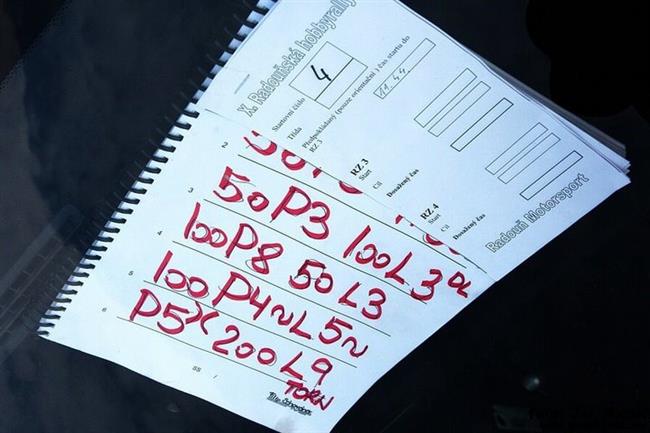 X. Radouňská hobbyrally
Startovní číslo 4
Třída
Předpokládaný (pouze orientační) čas startu do
RZ 3 11.44
RZ.3
Start
Cíl
Dosažený čas
RZ.4
Start
Cíl
Dosažený čas
Radouň Motorsport
2
3 50P3 100L3
4 100P8 50L3
5 100P4~L5~
6 P5X200L9
TORN